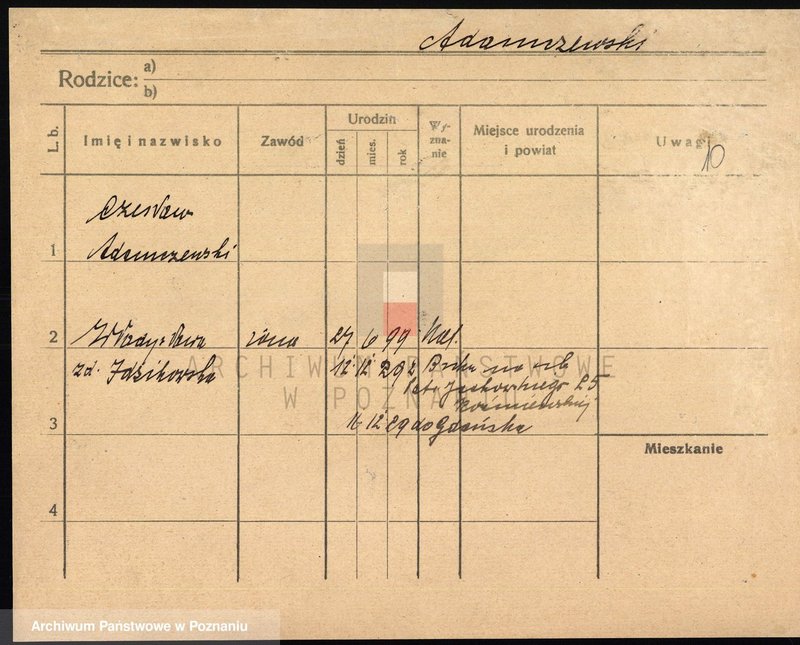 Adamczewski
Rodzice: a)
b)
L. b. Imię i nazwisko Zawód Urodzin dzień mies. rok Wy-zna-nie Miejsce urodzenia i powiat Uwagi
10
Czesław
1 Adamczewski
2 Władysława żona 27 6 99 kat.
zd. Idzikowska 12 12 29 z
3 16 12 29 do Gdańska
Mieszkanie
4
ARCHIWUM PAŃSTWOWE
W POZNANIU
Archiwum Państwowe w Poznaniu